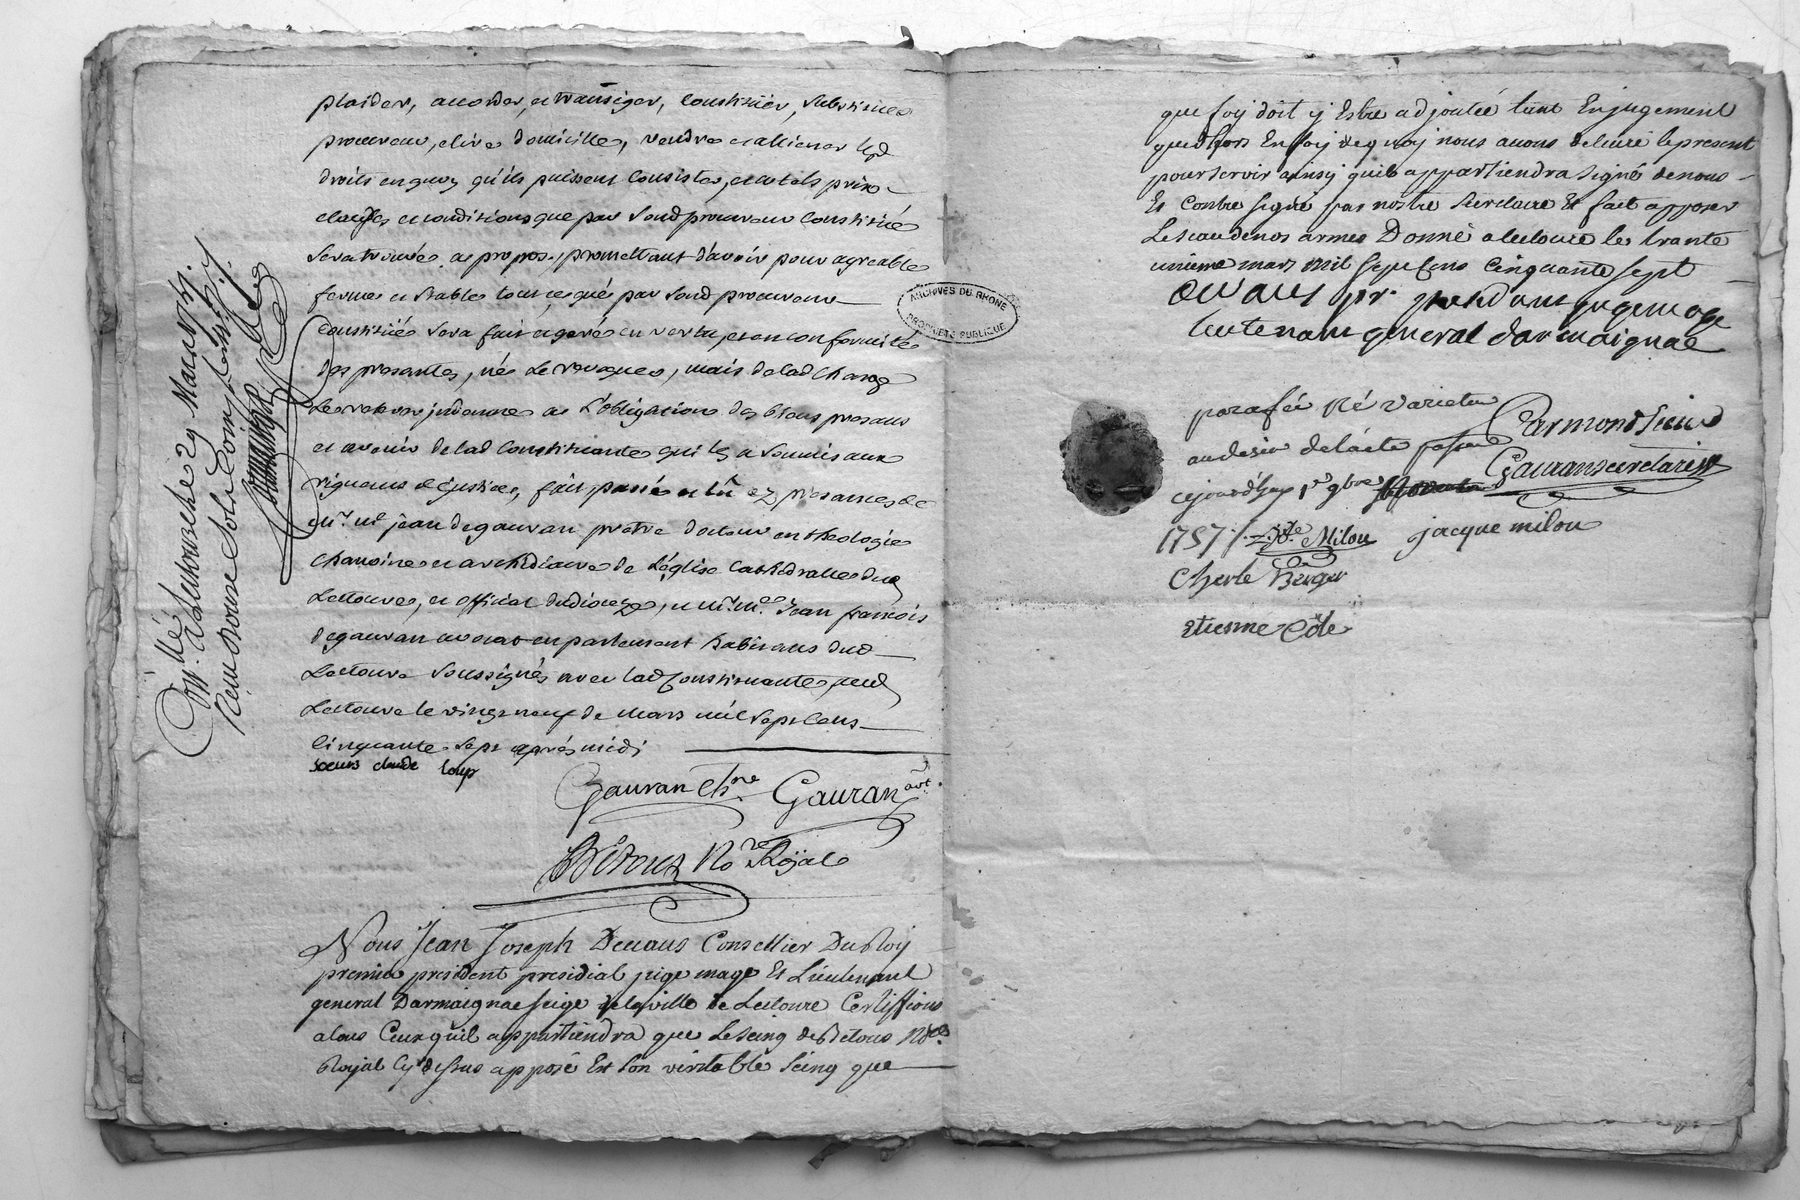 plaider, accorder, et transiger, Constituer, substituer
procureur, elire domicille, vendre et alliener lesd
droits en quoy qu'ils puissent Consister, et a tels prix
clauses et conditions que par Sond procureur Constitué
Sera trouvés a propos, promettant d'avoir pour agreable
ferme et stable tout ce qué par Sond procureur
Constitué Sera fait et geré en vertu, et en conformité
des presantes, née le revoquer, mais de lad Charge
le relever indemne a L'obligation des biens presans
et avenir de lad Constituante qui les a Soumis aux
rigueurs de justice, fait, passé ez presances de
Mr. me jean de gauran pretre docteur en theologie
Chanoine et archidiacre de L'église Cathedralle dud
Lectoure, et official du dioceze, et Mr. me. Jean francois
de gauran avocat en parlement habitans dud
Lectoure Soussignés avec lad Constituante, aud
Lectoure le vingt neuf de Mars mil Sept Cens
Cinquante Sept après midi
soeurs claude loup
Gauran Chne Gauran avt.
Bétous No.re Royal
Nous Jean Joseph Devaus Conseillier Du Roy
premier president presidial juge mage Et Lieutenant
general Darmaignac seige de la ville de Lectoure Certiffions
a tous Ceux quil appartiendra que Le seing de Betous Nore
Royal Cy dessus apposé Est Son véritable Seing que
Conllé. a Lectoure le 29 Mars 1757.
Reçu Douze Sols
ARCHIVES DU RHONE
PROPRIÉTÉ PUBLIQUE
que foy doit y Estre adjoutée tant En jugement
que d'hors En foy de quoy nous avons delivré le present
pour servir ainsy quil appartiendra signé de nous
Et Contre signé par nostre Secretaire Et fait apposer
Le sceau de nos armes Donné a Lectoure le trante
unieme mars mil Sept Cens Cinquante Sept
devaus pr. president juge mage
lieutenant general darmaignac
parafée Né varietur
au desir de lacte passé
cejourd'huy 1er 9bre
1757 Milou jacque milou
Gauran secretaire
Cherle Berger
etienne Côte